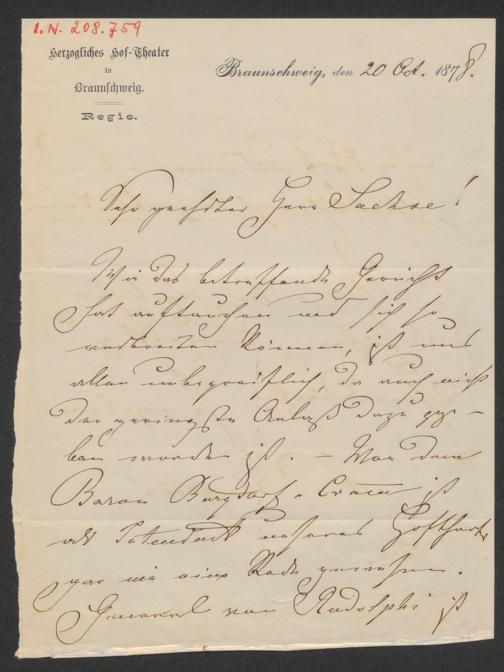 I.N. 208.759
Herzogliches Hof-Theater
in
Braunschweig.
Regie.
Braunschweig, den 20 Oct. 1878.
Sehr geehrter Herr Sachse!
Wie das betreffende Gerücht
hat auftauchen und sich so
verbreiten können, ist uns
allen unbegreiflich, da auch nicht
der geringste Anlaß dazu gege-
ben worden ist. – Von dem
Baron Burgdorf-Cramm ist
als Intendant unseres Hoftheaters
gar nie eine Rede gewesen.
General von Rudolphi ist